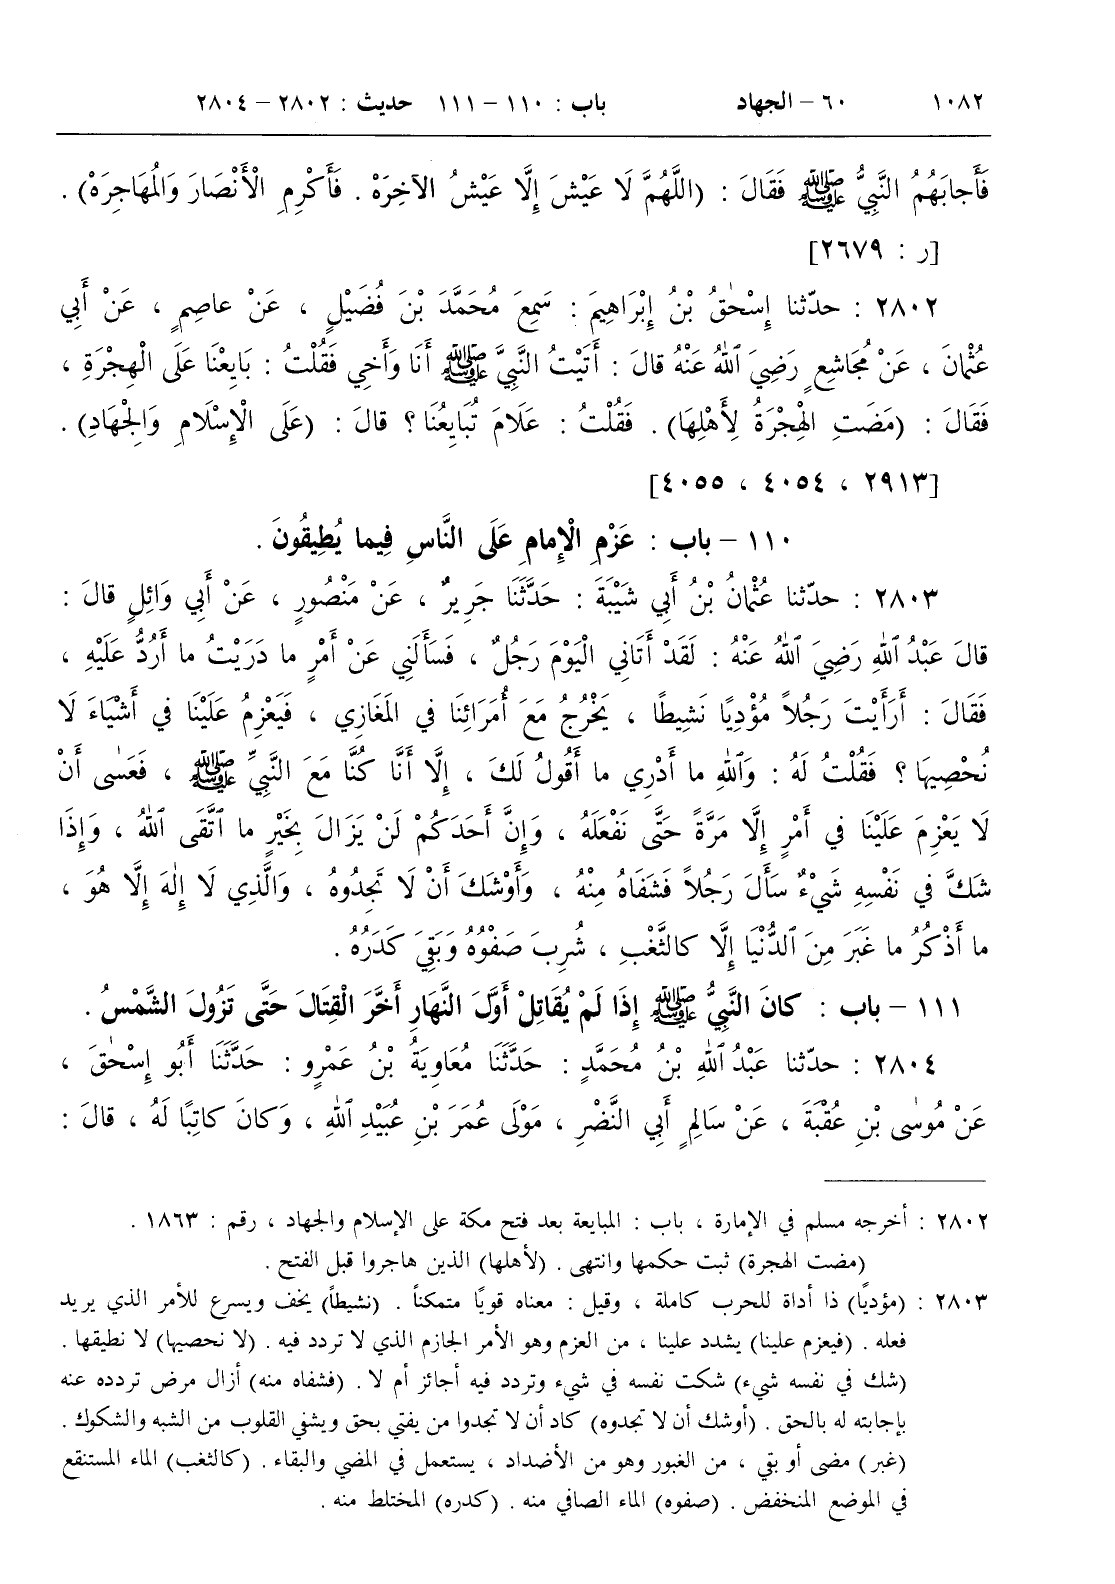 ١٠٨٢ ٦٠ – الجهاد باب : ١١٠ – ١١١ حديث : ٢٨٠٢ – ٢٨٠٤
فَأَجابَهُمُ النَّبِيُّ ﷺ فَقَالَ : (اللَّهُمَّ لَا عَيْشَ إِلَّا عَيْشُ الآخِرَهْ . فَأَكْرِمِ الْأَنْصَارَ وَالْمُهَاجِرَهْ) .
[ر : ٢٦٧٩]
٢٨٠٢ : حدّثنا إِسْحٰقُ بْنُ إِبْرَاهِيمَ : سَمِعَ مُحَمَّدَ بْنَ فُضَيْلٍ ، عَنْ عاصِمٍ ، عَنْ أَبِي
عُثْمانَ ، عَنْ مُجَاشِعٍ رَضِيَ ٱللهُ عَنْهُ قالَ : أَتَيْتُ النَّبِيَّ ﷺ أَنَا وَأَخِي فَقُلْتُ : بَايِعْنَا عَلَى الْهِجْرَةِ ،
فَقَالَ : (مَضَتِ الْهِجْرَةُ لِأَهْلِهَا) . فَقُلْتُ : عَلَامَ تُبَايِعُنَا ؟ قالَ : (عَلَى الْإِسْلَامِ وَالْجِهَادِ) .
[٢٩١٣ ، ٤٠٥٤ ، ٤٠٥٥]
١١٠ – باب : عَزْمِ الْإِمامِ عَلَى النَّاسِ فِيما يُطِيقُونَ .
٢٨٠٣ : حدّثنا عُثْمانُ بْنُ أَبِي شَيْبَةَ : حَدَّثَنَا جَرِيرٌ ، عَنْ مَنْصُورٍ ، عَنْ أَبِي وَائِلٍ قالَ :
قالَ عَبْدُ ٱللهِ رَضِيَ ٱللهُ عَنْهُ : لَقَدْ أَتَانِي الْيَوْمَ رَجُلٌ ، فَسَأَلَنِي عَنْ أَمْرٍ ما دَرَيْتُ ما أَرُدُّ عَلَيْهِ ،
فَقَالَ : أَرَأَيْتَ رَجُلاً مُؤْدِيًا نَشِيطًا ، يَخْرُجُ مَعَ أُمَرَائِنَا فِي المَغَازِي ، فَيَعْزِمُ عَلَيْنَا فِي أَشْيَاءَ لَا
نُحْصِيهَا ؟ فَقُلْتُ لَهُ : وَٱللهِ ما أَدْرِي ما أَقُولُ لَكَ ، إِلَّا أَنَّا كُنَّا مَعَ النَّبِيِّ ﷺ ، فَعَسٰى أَنْ
لَا يَعْزِمَ عَلَيْنَا فِي أَمْرٍ إِلَّا مَرَّةً حَتَّى نَفْعَلَهُ ، وَإِنَّ أَحَدَكُمْ لَنْ يَزَالَ بِخَيْرٍ ما ٱتَّقَى ٱللهَ ، وَإِذَا
شَكَّ فِي نَفْسِهِ شَيْءٌ سَأَلَ رَجُلاً فَشَفَاهُ مِنْهُ ، وَأَوْشَكَ أَنْ لَا تَجِدُوهُ ، وَالَّذِي لَا إِلٰهَ إِلَّا هُوَ ،
ما أَذْكُرُ ما غَبَرَ مِنَ ٱلدُّنْيَا إِلَّا كالثَّغْبِ ، شُرِبَ صَفْوُهُ وَبَقِيَ كَدَرُهُ .
١١١ – باب : كانَ النَّبِيُّ ﷺ إِذَا لَمْ يُقَاتِلْ أَوَّلَ النَّهَارِ أَخَّرَ الْقِتَالَ حَتَّى تَزُولَ الشَّمْسُ .
٢٨٠٤ : حدّثنا عَبْدُ ٱللهِ بْنُ مُحَمَّدٍ : حَدَّثَنَا مُعَاوِيَةُ بْنُ عَمْرٍو : حَدَّثَنَا أَبُو إِسْحٰقَ ،
عَنْ مُوسٰى بْنِ عُقْبَةَ ، عَنْ سَالِمٍ أَبِي النَّضْرِ ، مَوْلَى عُمَرَ بْنِ عُبَيْدِ ٱللهِ ، وَكانَ كاتِبًا لَهُ ، قالَ :
٢٨٠٢ : أخرجه مسلم في الإمارة ، باب : المبايعة بعد فتح مكة على الإسلام والجهاد ، رقم : ١٨٦٣ .
(مضت الهجرة) ثبت حكمها وانتهى . (لأهلها) الذين هاجروا قبل الفتح .
٢٨٠٣ : (مؤديًا) ذا أداة للحرب كاملة ، وقيل : معناه قويًا متمكناً . (نشيطاً) يخف ويسرع للأمر الذي يريد
فعله . (فيعزم علينا) يشدد علينا ، من العزم وهو الأمر الجازم الذي لا تردد فيه . (لا نحصيها) لا نطيقها .
(شك في نفسه شيء) شكت نفسه في شيء وتردد فيه أجائز أم لا . (فشفاه منه) أزال مرض تردده عنه
بإجابته له بالحق . (أوشك أن لا تجدوه) كاد أن لا تجدوا من يفتي بحق ويشفي القلوب من الشبه والشكوك .
(غبر) مضى أو بقي ، من الغبور وهو من الأضداد ، يستعمل في المضي والبقاء . (كالثغب) الماء المستنقع
في الموضع المنخفض . (صفوه) الماء الصافي منه . (كدره) المختلط منه .